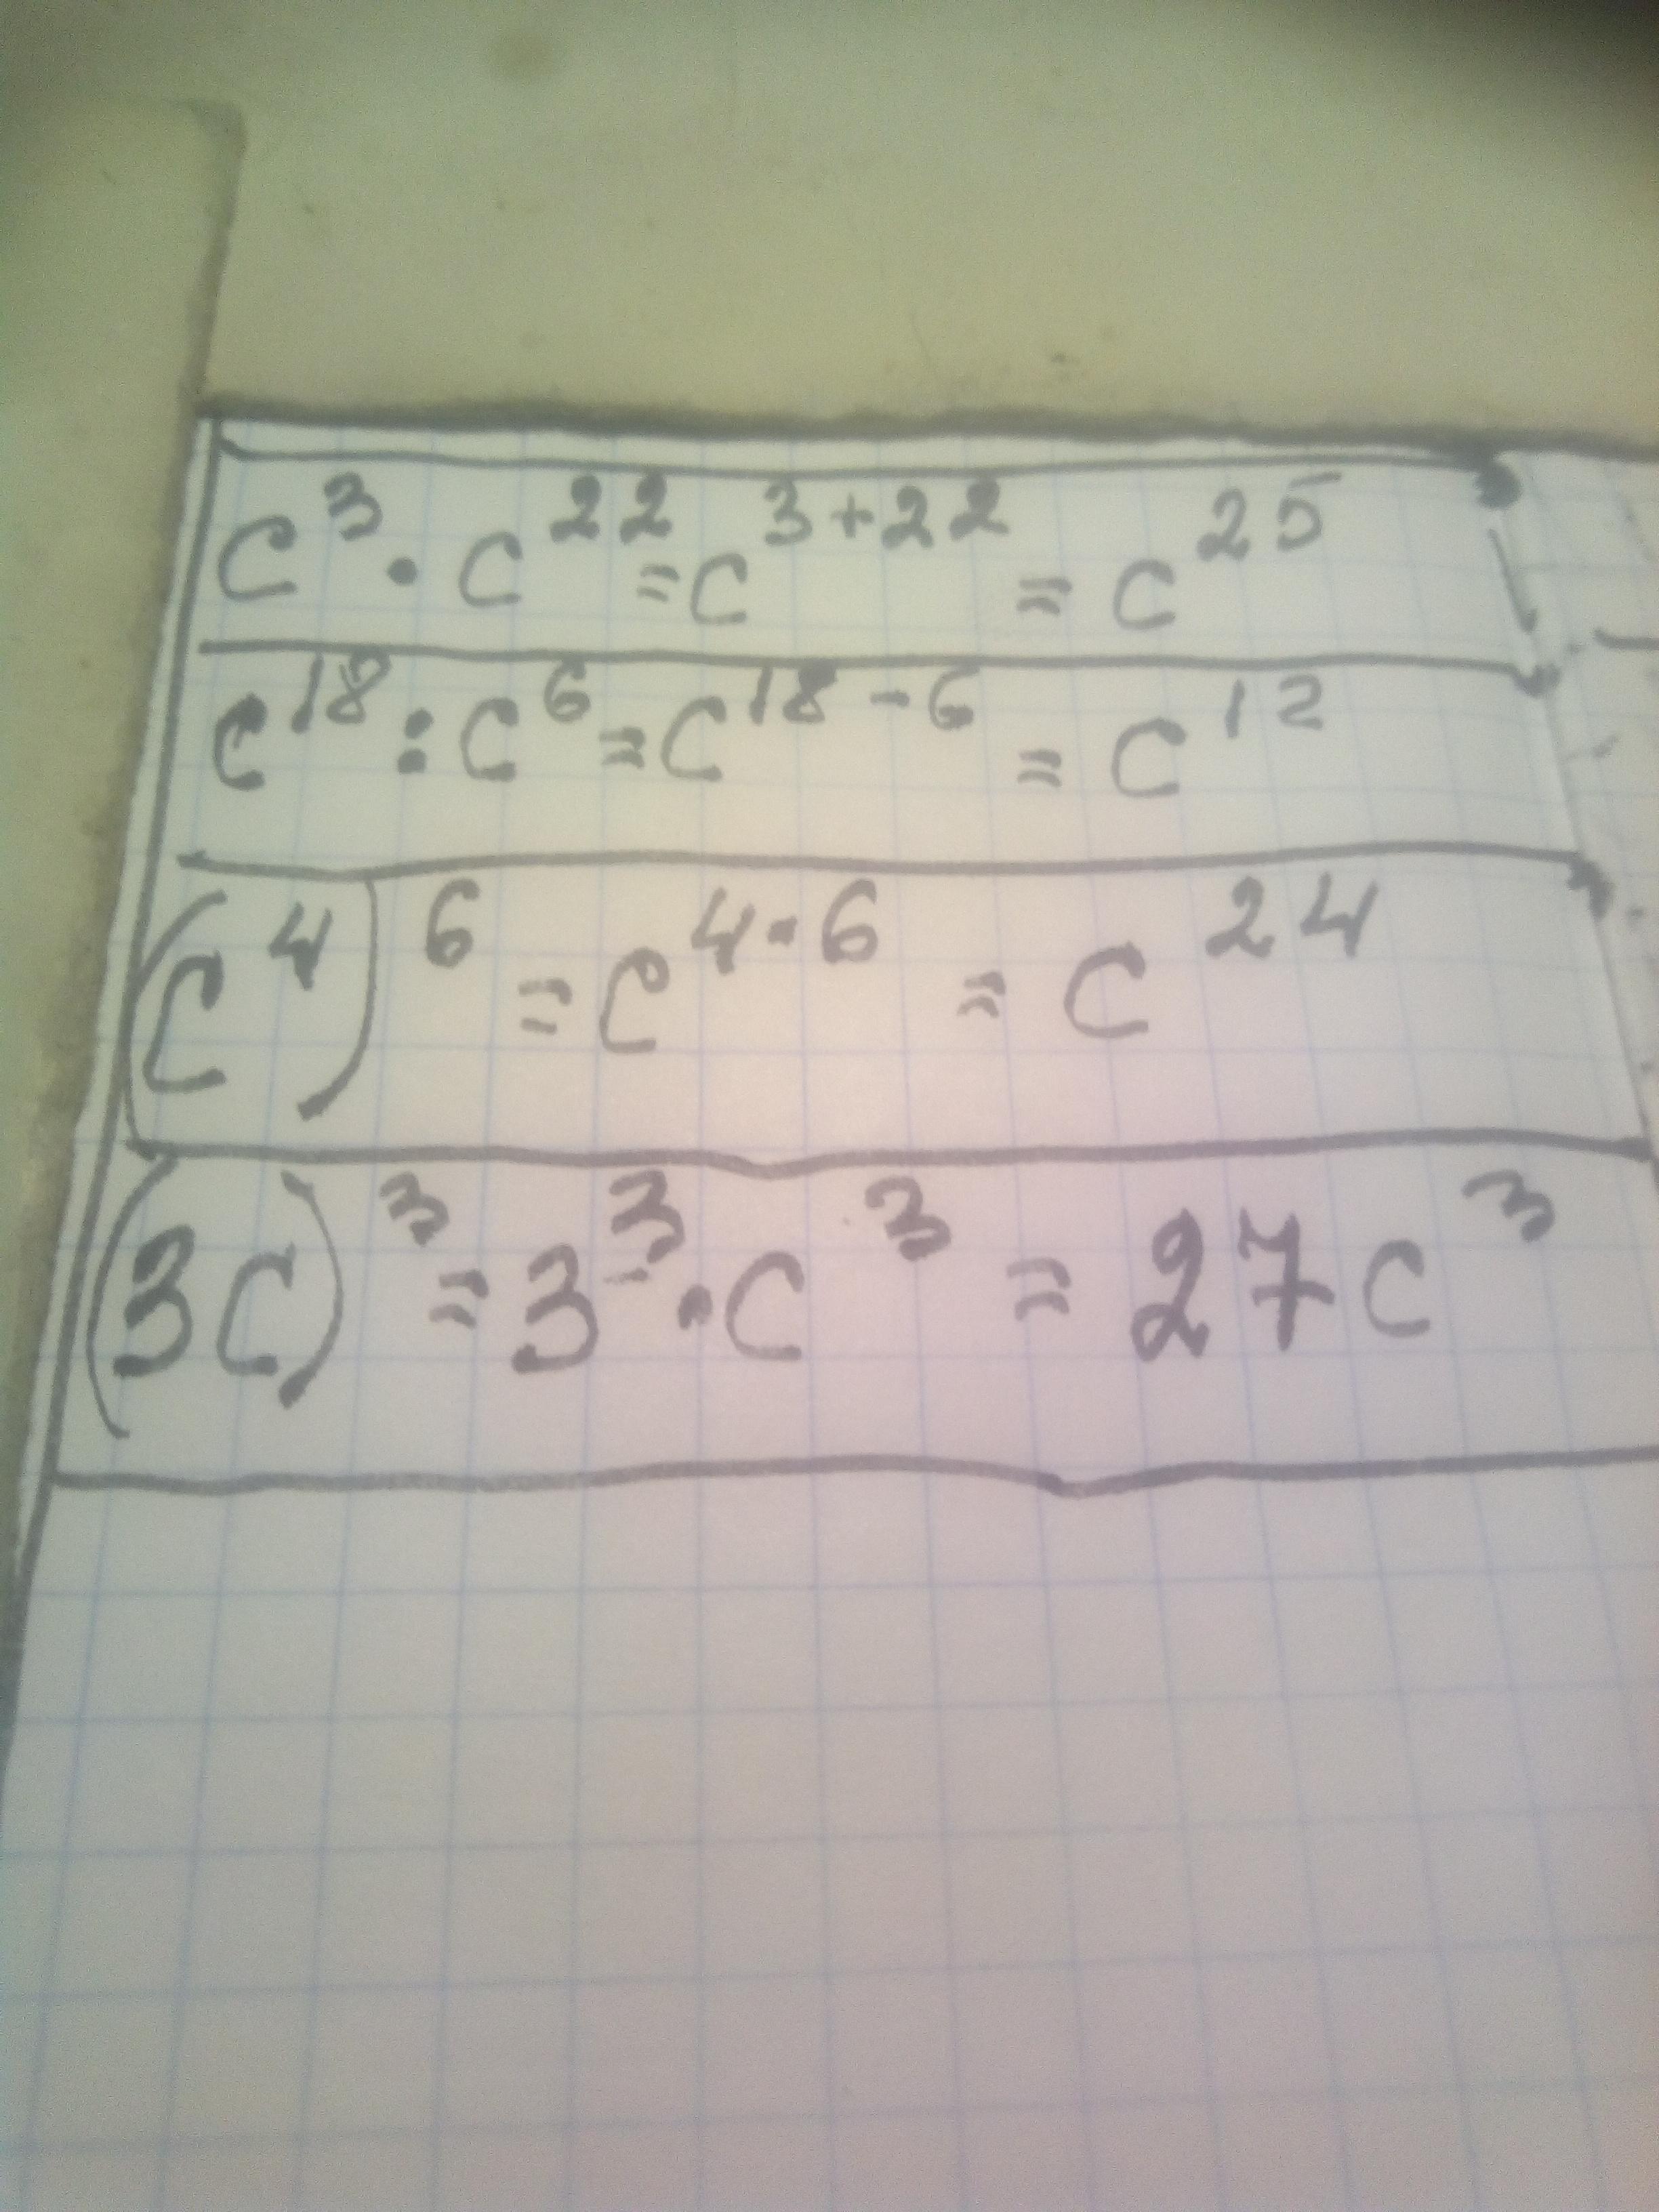 c³ · c²² = c³⁺²² = c²⁵
c¹⁸ : c⁶ = c¹⁸⁻⁶ = c¹²
(c⁴)⁶ = c⁴·⁶ = c²⁴
(3c)³ = 3³ · c³ = 27c³